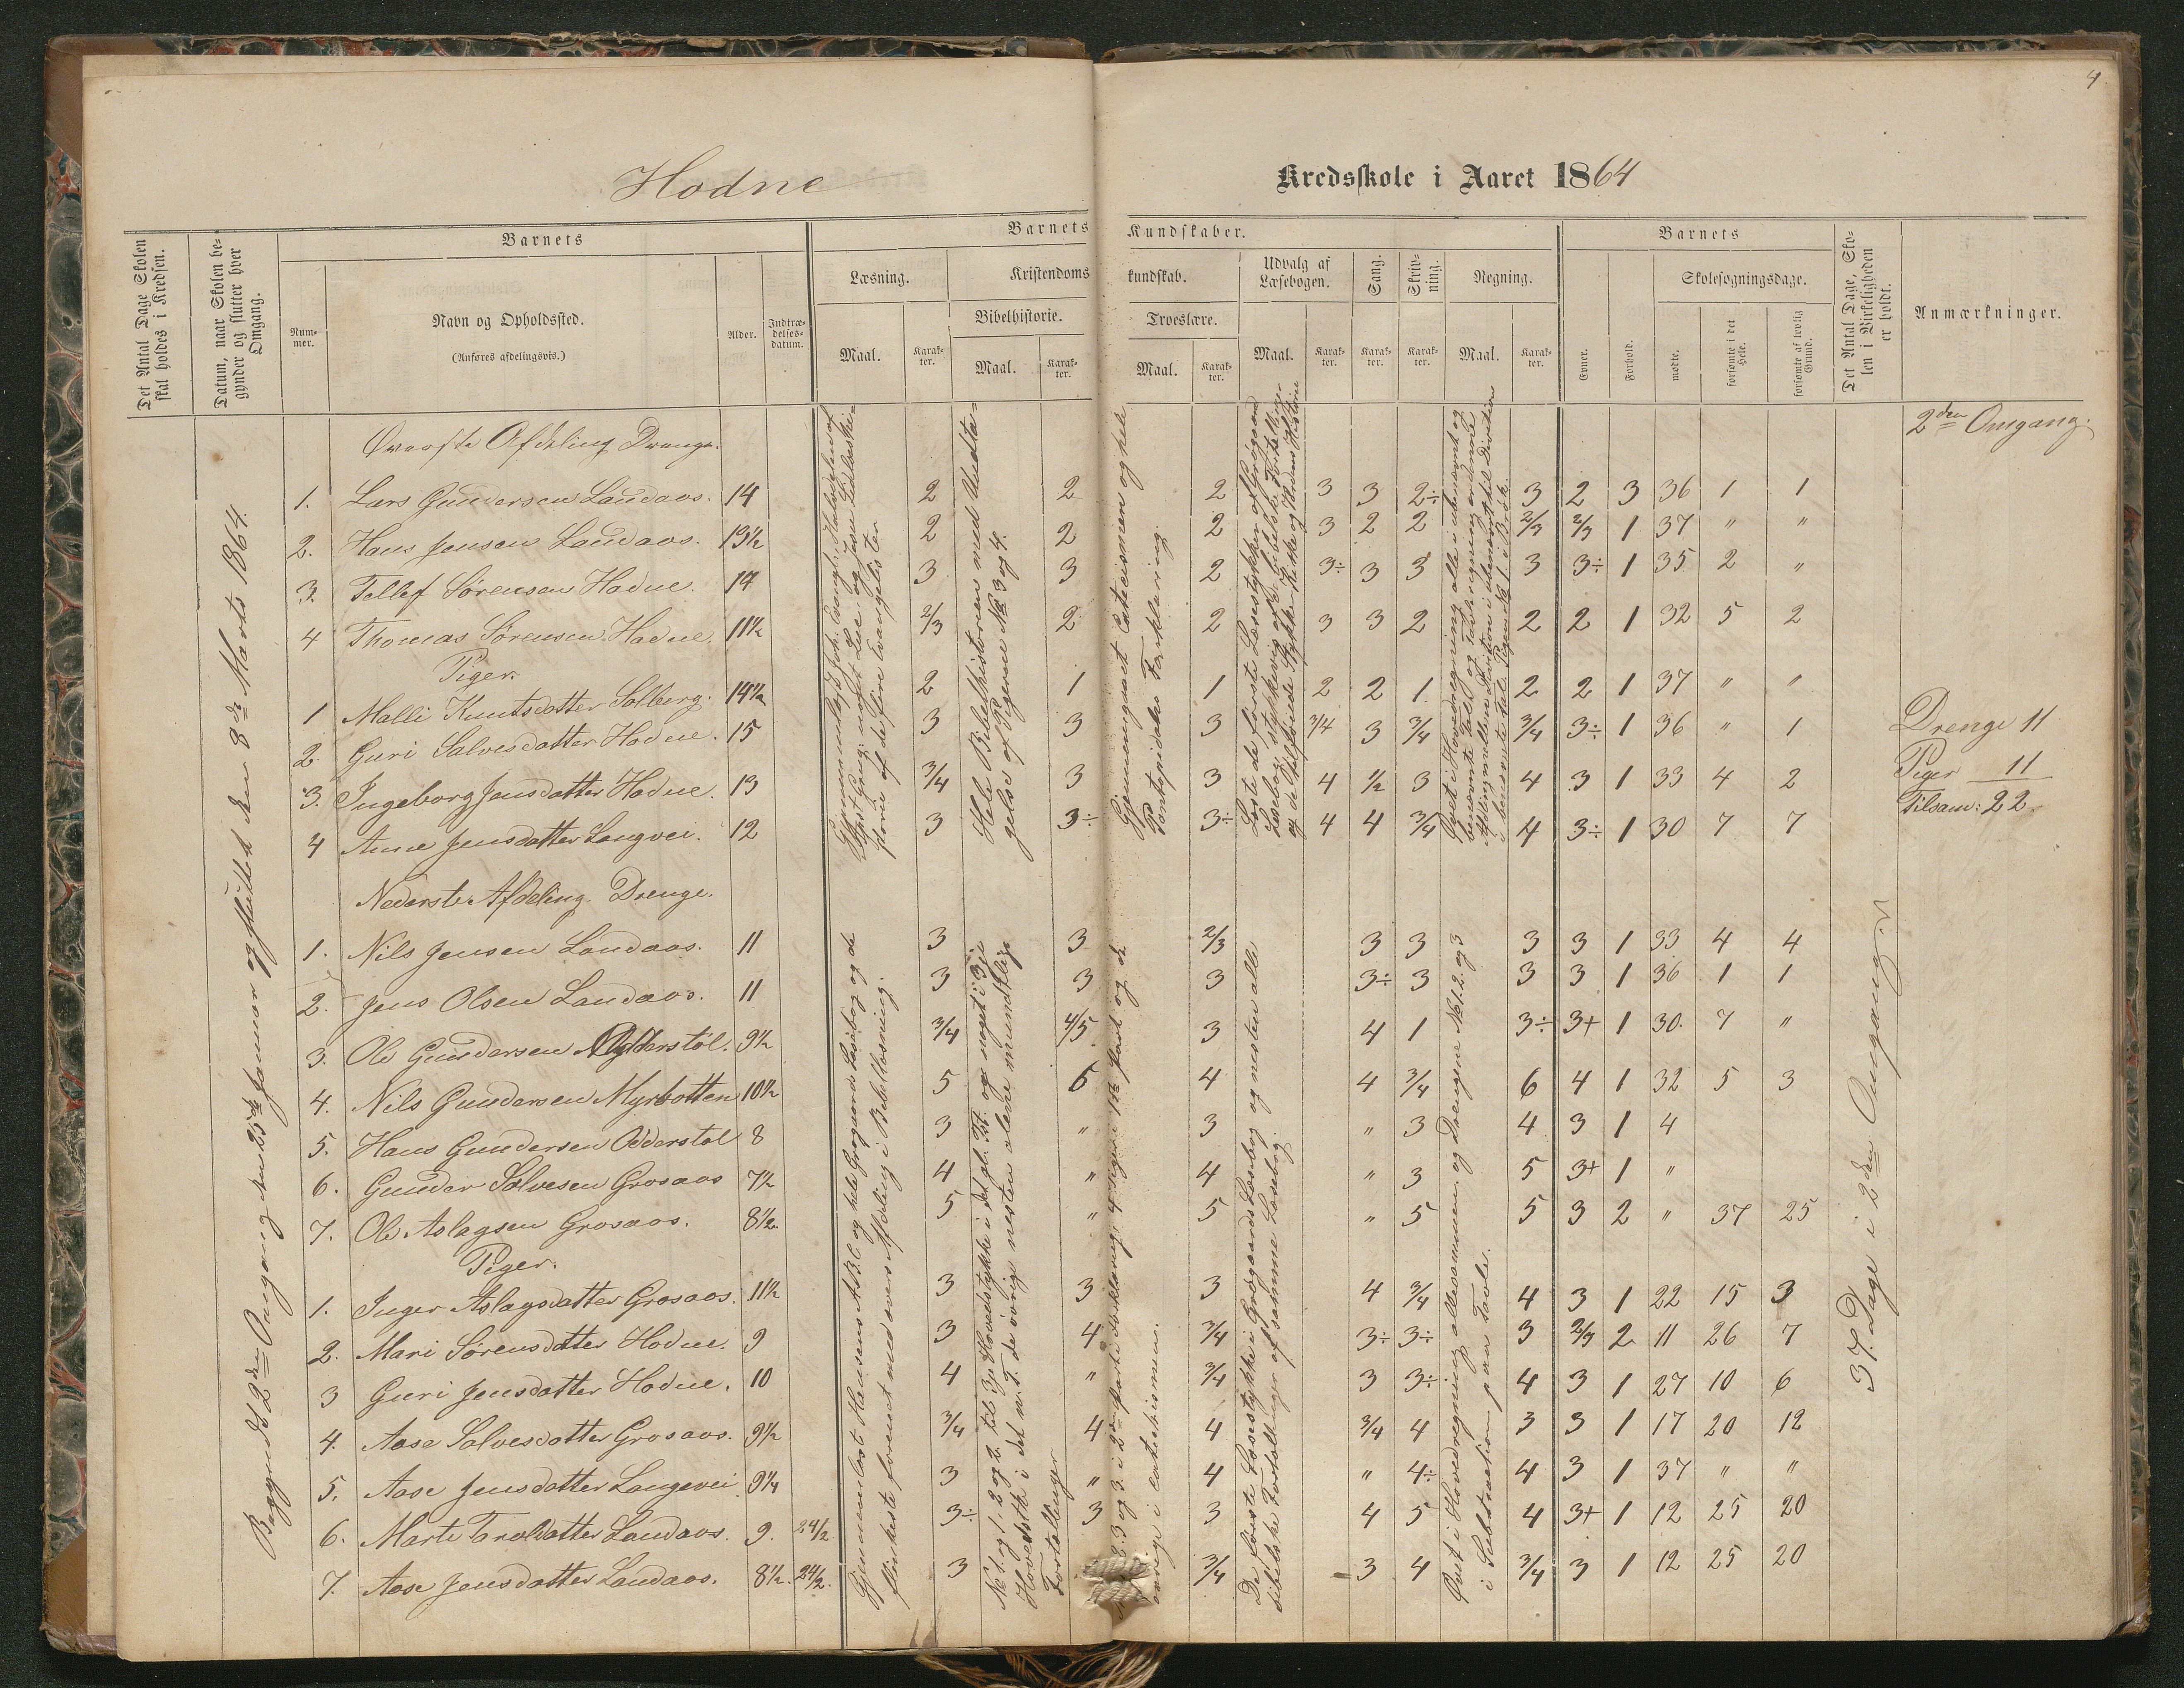 4
Hodne
Kredsskole i Aaret 1864
Det Antal Dage Skolen skal holdes i Kredsen.
Datum, naar Skolen begynder og slutter hver Omgang.
Barnets
Nummer.
Navn og Opholdssted.
(Anføres afdelingsvis.)
Alder.
Indtrædelsesdatum.
Barnets Kundskaber.
Læsning.
Maal.
Karakter.
Kristendomskundskab.
Bibelhistorie.
Maal.
Karakter.
Troeslære.
Maal.
Karakter.
Udvalg af Læsebogen.
Maal.
Karakter.
Sang.
Karakter.
Skrivning.
Karakter.
Regning.
Maal.
Karakter.
Barnets
Evner.
Forhold.
Skolesøgningsdage.
mødte.
forsømte i det Hele.
forsømte af lovlig Grund.
Det Antal Dage, Skolen i Virkeligheden er holdt.
Anmærkninger.
Begyndt 2den Omgang den 25de Januar og sluttet den 8de Marts 1864.
Øverste Afdeling Drenge. 2den Omgang.
1. Lars Gundersen Landaas. 14 2 2 2 3 3 2÷ 3 2 3 36 1 1
2. Hans Jensen Landaas. 13½ 2 2 2 3 2 2 2/3 2/3 1 37 " "
3. Tellef Sørensen Hodne. 14 3 3 2 3÷ 3 3 3 3÷ 1 35 2 "
4 Thomas Sørensen Hodne. 11½ 2/3 2 2 3 3 2 2 2 1 32 5 2
Piger.
1 Malli Knutsdatter Solberg. 14½ 2 1 1 2 2 1 2 2 1 37 " "
2. Guri Salvesdatter Hodne. 15 3 3 3 3/4 3 3/4 3/4 3÷ 1 36 " 1
3. Ingeborg Jensdatter Hodne. 13 3/4 3 3 4 ½ 3 4 3 1 33 4 2
4 Anne Jensdatter Langvei. 12 3 3÷ 3÷ 4 4 3/4 4 3÷ 1 30 7 7
Drenge 11
Piger 11
Tilsam: 22
Hele Bibelhistorien med Undtagelse af Pigerne No 3 og 4.
Gjennemgaaet Catecismen og hele Pontopidans Forklaring.
Nederste Afdeling. Drenge.
1. Nils Jensen Landaas. 11 3 3 2/3 3 3 3 3 1 33 4 4
2. Jens Olsen Landaas. 11 3 3 3 3÷ 3 3 3 1 36 1 1
3. Ole Gundersen 9½ 3/4 4/5 3 4 1 3÷ 3+ 1 30. 7 "
4. Nils Gundersen Myrbotten 10½ 5 6 4 4 3/4 6 4 1 32 5 3
5. Hans Gundersen Odderstøl 8 3 " 3 " 3 4 3 1 4
6. Gunder Salvesen Grosaas 7½ 4 " 4 " 3 5 3+ 1 "
7. Ole Aslagsen Grosaas. 8½ 5 " 5 " 5 5 3 2 " 37 25
Piger.
1. Inger Aslagsdatter Grosaas. 11½ 3 3 3 4 3/4 4 3 1 22 15 3
2. Mari Sørensdatter Hodne. 9 3 4 3/4 3÷ 3÷ 3 2/3 2 11 26 7
3 Guri Jensdatter Hodne. 10 4 " 3/4 3 3÷ 4 3 1 27 10 6
4. Aase Salvesdatter Grosaas. 9½ 3/4 4 4 3/4 4 3 3 1 17 20 12
5. Aase Jensdatter Langevei 9¼ 3 " 4 " 4÷ 4 3 1 37 " "
6. Marte Taroldatter Landaas. 9. 24/2 3÷ 3 3 4 5 4 3+ 1 12 25 20
7. Aase Jensdatter Landaas. 8½. 24/2. 3 3/4 3 4 3/4 3 1 12 25 20
Gjennemlæst Hansens A.B.C og hele Grøgaards Læsebog og de flinkeste forenet med øvers Afdeling i Bibellæsning.
De første Læsestykke i Grøgaards Læsebog og næsten alle bibelske Fortællinger af samme Læsebog.
Øvet i Hovedregning allesammen, og Drengene No 1. 2. og 3 i Subtraction paa Tavle.
37. Dage i 2den Omgang